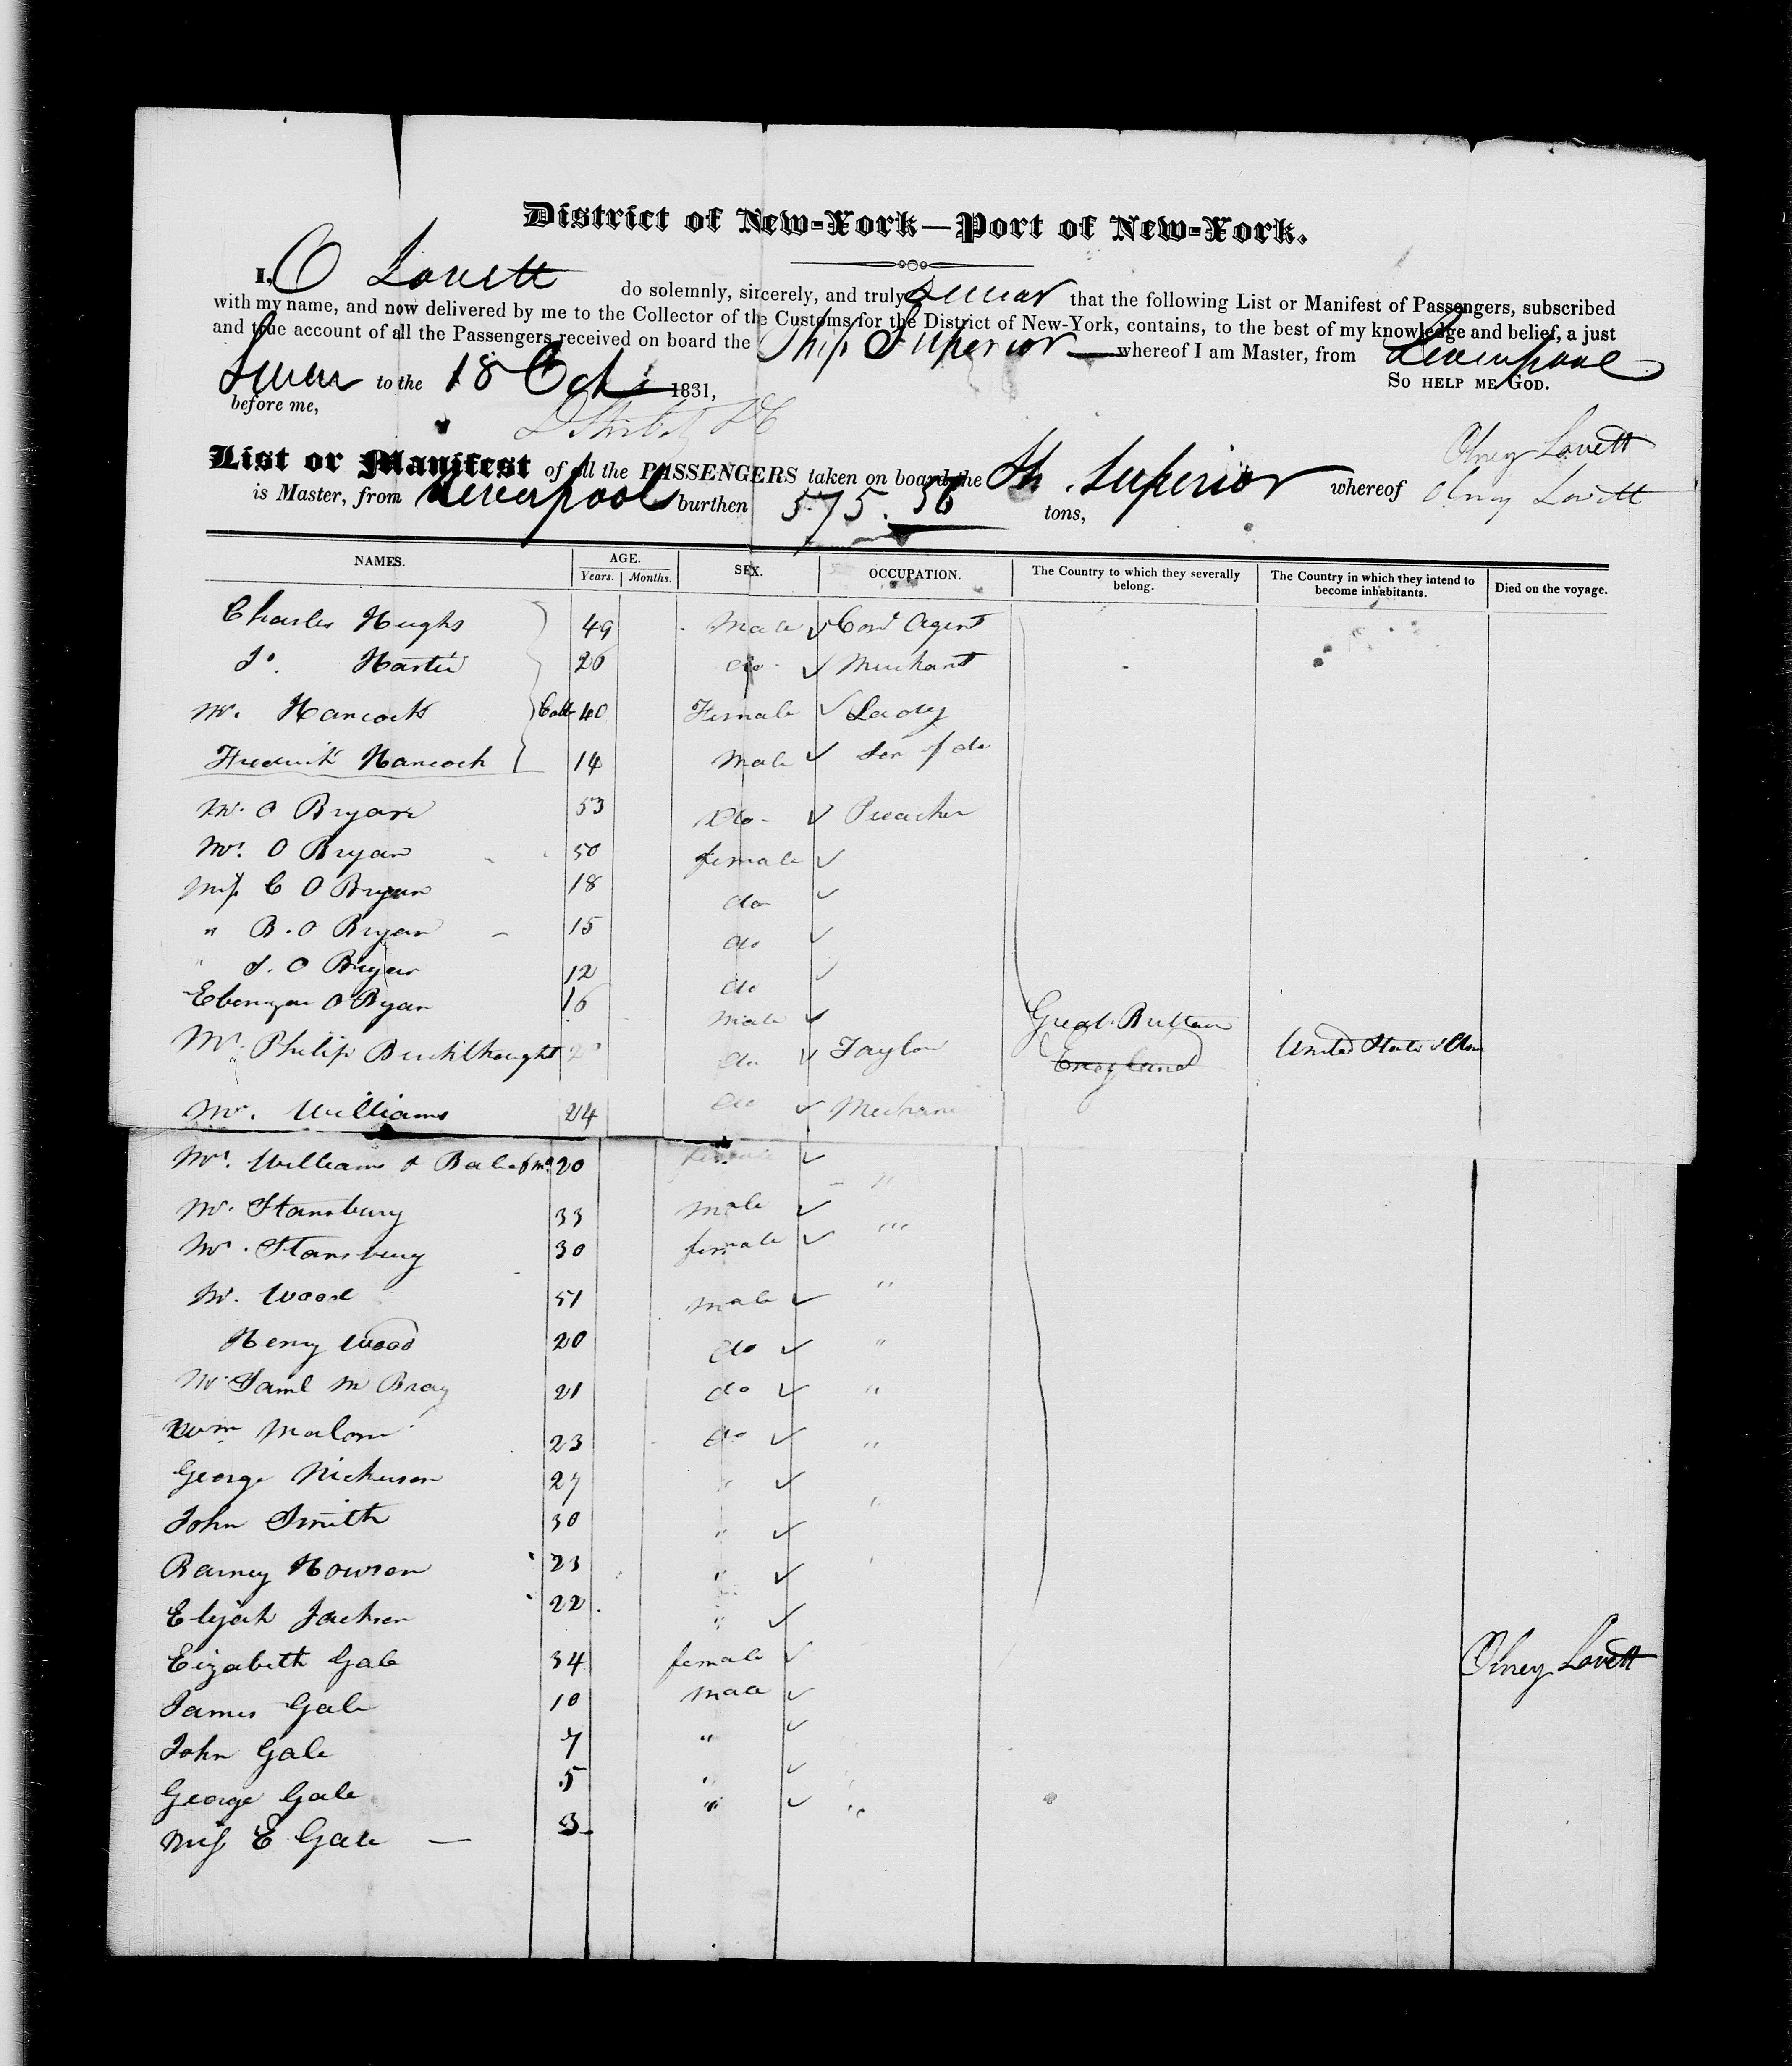 District of New-York—Port of New-York.
I, O Lovett do solemnly, sincerely, and truly swear that the following List or Manifest of Passengers, subscribed
with my name, and now delivered by me to the Collector of the Customs for the District of New-York, contains, to the best of my knowledge and belief, a just
and true account of all the Passengers received on board the Ship Superior whereof I am Master, from Liverpool
Sworn to the 18 Oct 1831, So help me God.
before me,
Olney Lovett
List or Manifest of all the PASSENGERS taken on board the Sh. Superior whereof Olney Lovett
is Master, from Liverpool burthen 575. 36 tons,
NAMES. AGE. Years. Months. SEX. OCCUPATION. The Country to which they severally belong. The Country in which they intend to become inhabitants. Died on the voyage.
Charles Hughs 49 Male Agent
Jo. 26 do Merchant
Mrs. Hancock 40 Female Lady
Frederick Hancock 14 Male Son of do
Mr. O Bryan 53 do Preacher
Mrs. O Bryan 50 female
Miss C O Bryan 18 do
" B. O Bryan 15 do
" S. O Bryan 12 do
Ebenezer O Bryan 16 Male Great Britain
Mr. Philip 2 do Taylor England United States
Mr. Williams 24 do Mechanic
Mrs. Williams & Babe 20 female "
Mr. Stansbury 33 Male
Mrs. Stansbury 30 female "
Mr. Wood 51 Male "
Henry Wood 20 do "
Mr Saml M Bray 21 do "
Wm Malom 23 do "
George Nickerson 27 " "
John Smith 30 "
Barney Howson 23 "
Elijah Jackson 22 "
Elizabeth Gale 34 female Olney Lovett
James Gale 10 Male
John Gale 7 "
George Gale 5 "
Miss E Gale — 3 " "